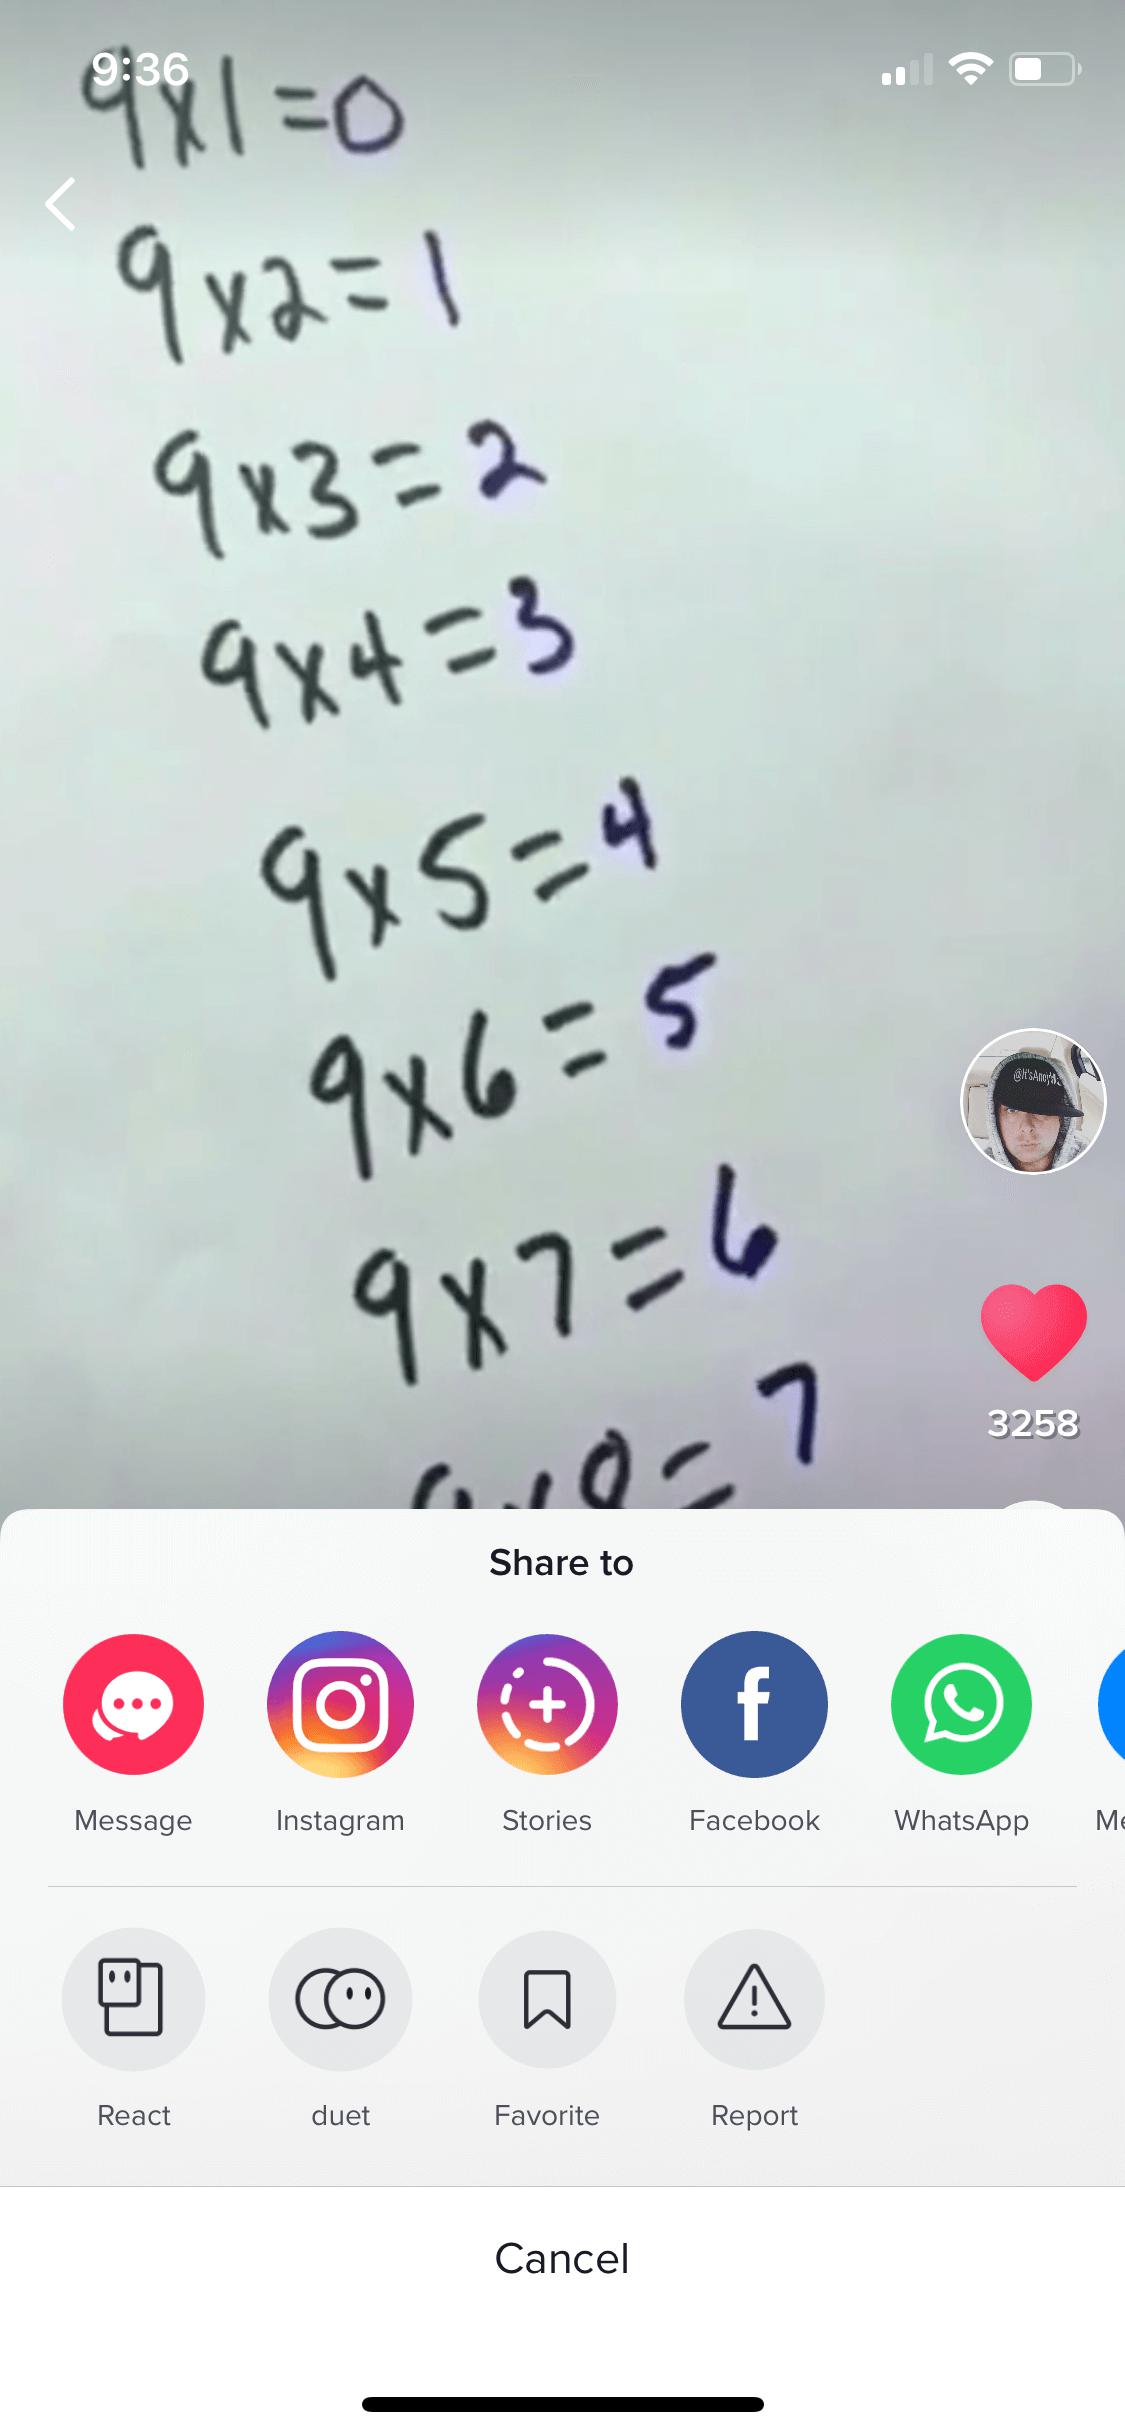 9:36
9x1=0
9x2=1
9x3=2
9x4=3
9x5=4
9x6=5
9x7=6
9x8=7
3258
Share to
Message Instagram Stories Facebook WhatsApp Me
React duet Favorite Report
Cancel